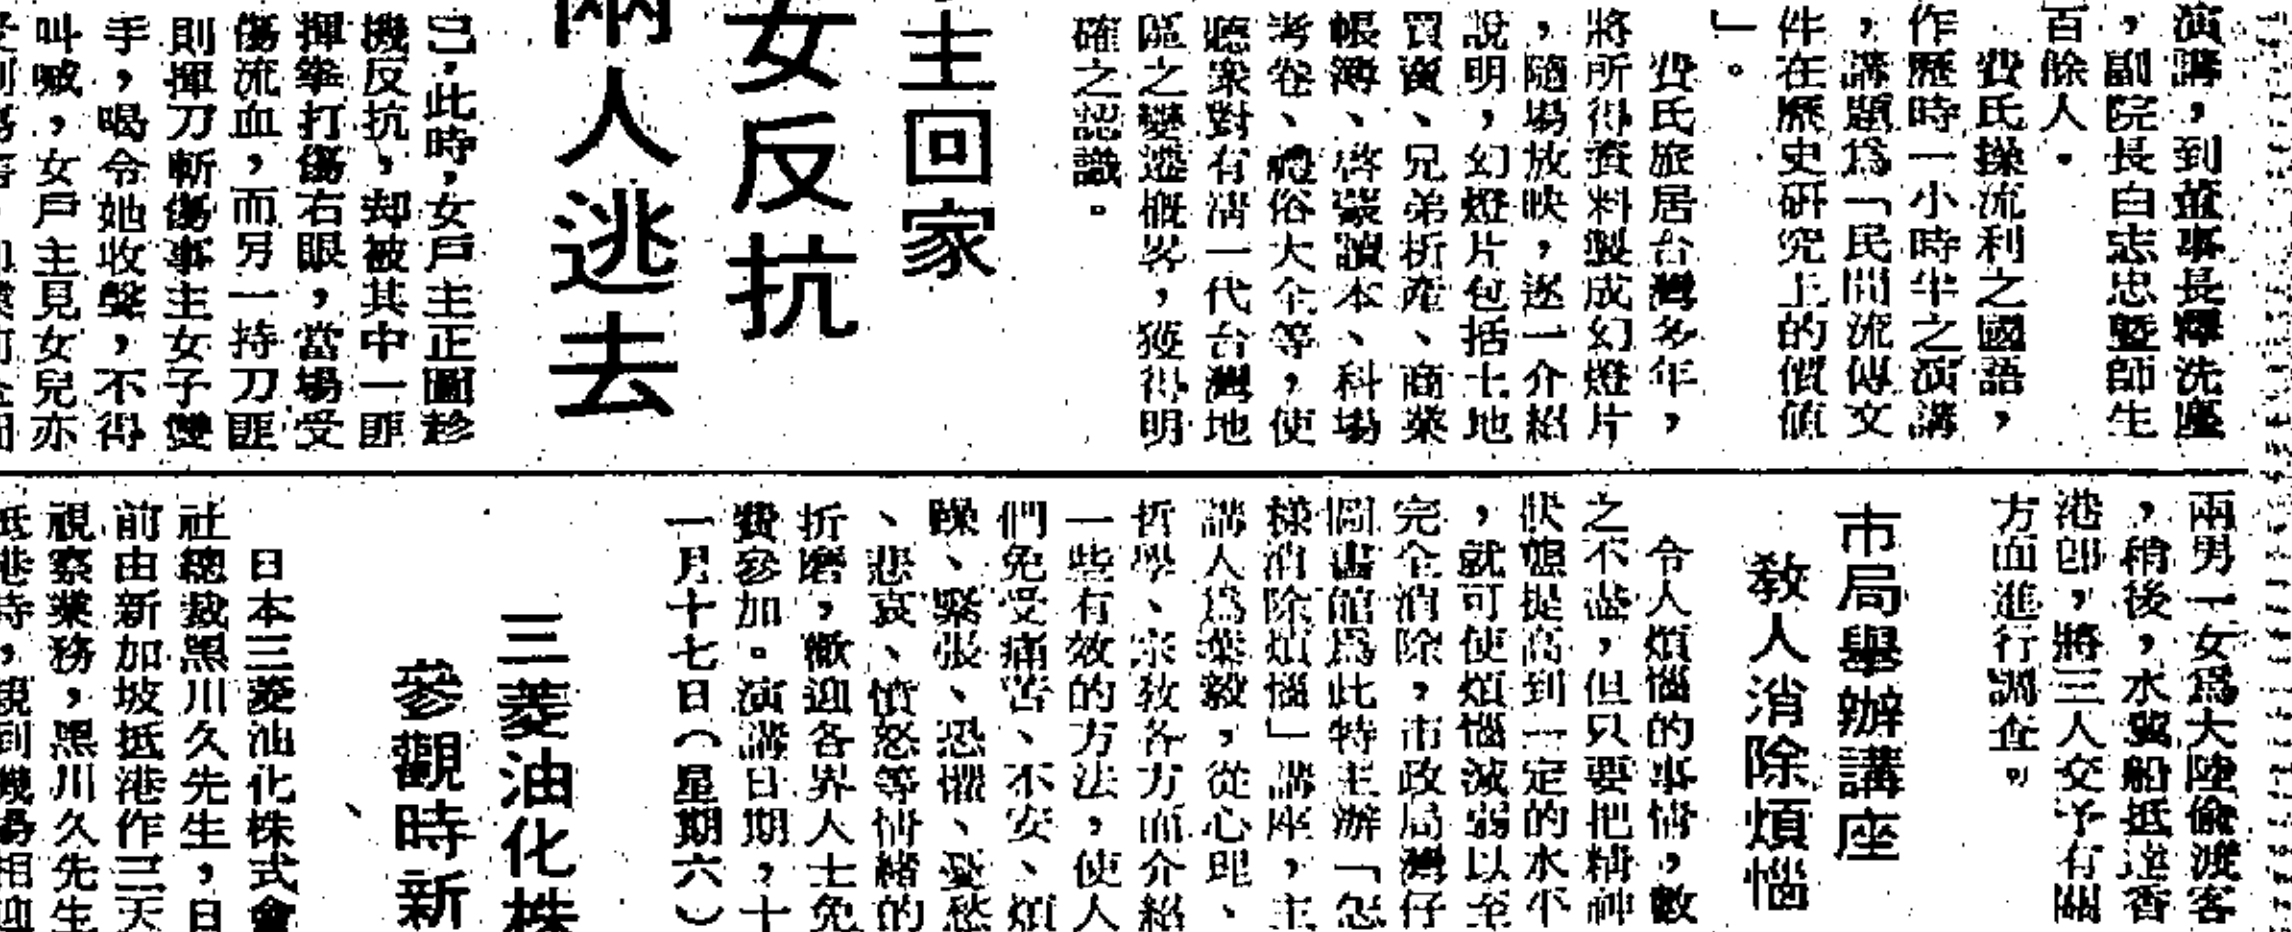 演講,到董事長釋洗塵
,副院長白志忠暨師生
百餘人。
費氏操流利之國語,
作歷時一小時半之演講
,講題爲「民間流傳文
件在歷史研究上的價値
」。
費氏旅居台灣多年,
將所得資料製成幻燈片
,隨場放映,逐一介紹
說明,幻燈片包括土地
買賣、兄弟析產、商業
帳簿、啓蒙讀本、科場
考卷、禮俗大全等,使
聽衆對有淸一代台灣地
區之變遷概畧,獲得明
確之認識。
主回家
女反抗
兩人逃去
己,此時,女戶主正圖趁
機反抗,却被其中一匪
揮拳打傷右眼,當場受
傷流血,而另一持刀匪
則揮刀斬傷事主女子雙
手,喝令她收聲,不得
叫喊,女戶主見女兒亦
兩男一女爲大陸偸渡客
,稍後,水翼船抵達香
港即,將三人交予有關
方面進行調查。
市局舉辦講座
敎人消除煩惱
令人煩惱的事情,數
之不盡,但只要把精神
狀態提高到一定的水平
,就可使煩惱減弱以至
完全消除,市政局灣仔
圖書館爲此特主辦「怎
樣消除煩惱」講座,主
講人爲葉毅,從心理、
哲學、宗敎各方面介紹
一些有效的方法,使人
們免受痛苦、不安、煩
躁、緊張、恐懼、憂愁
、悲哀、憤怒等情緒的
折磨,歡迎各界人士免
費參加。演講日期,十
一月十七日(星期六)
三菱油化株
參觀時新
日本三菱油化株式會
社總裁黑川久先生,日
前由新加坡抵港作三天
視察業務,黑川久先生
抵港時,親到機場相迎